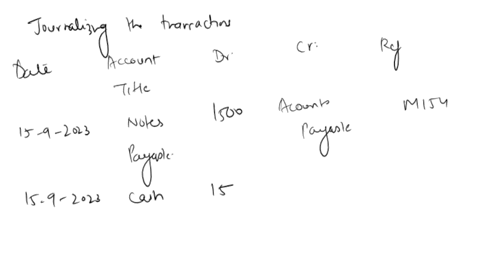 Journalizing the transactions
Date Account Title Dr. Cr. Ref
15-9-2023 Notes Payable 1500 Acounts Payable M154
15-9-2023 Cash 15